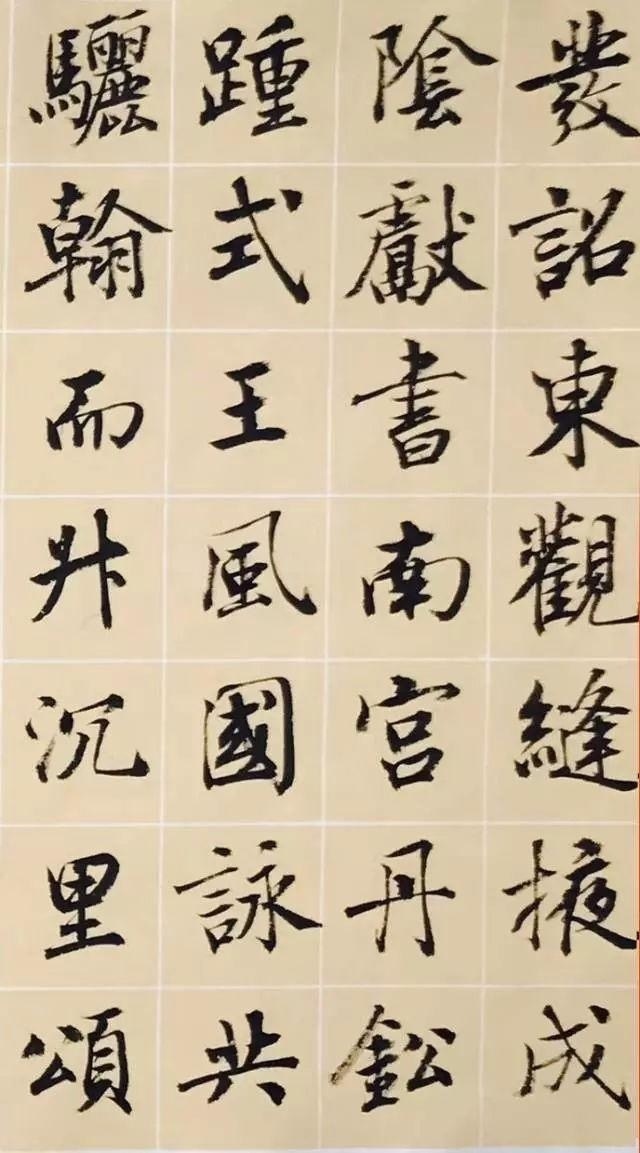 發詔東觀縫掖成
陰獻書南宮丹鈆
踵式王風國詠共
驪翰而昇沉里頌